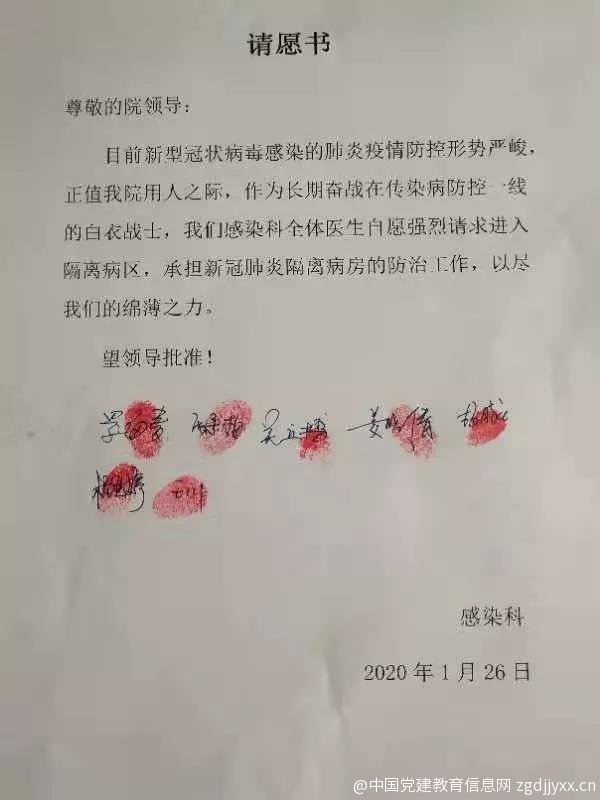 请愿书
尊敬的院领导：
目前新型冠状病毒感染的肺炎疫情防控形势严峻，
正值我院用人之际，作为长期奋战在传染病防控一线
的白衣战士，我们感染科全体医生自愿强烈请求进入
隔离病区，承担新冠肺炎隔离病房的防治工作，以尽
我们的绵薄之力。
望领导批准！
感染科
2020 年 1 月 26 日
@中国党建教育信息网 zgdjjyxx.cn